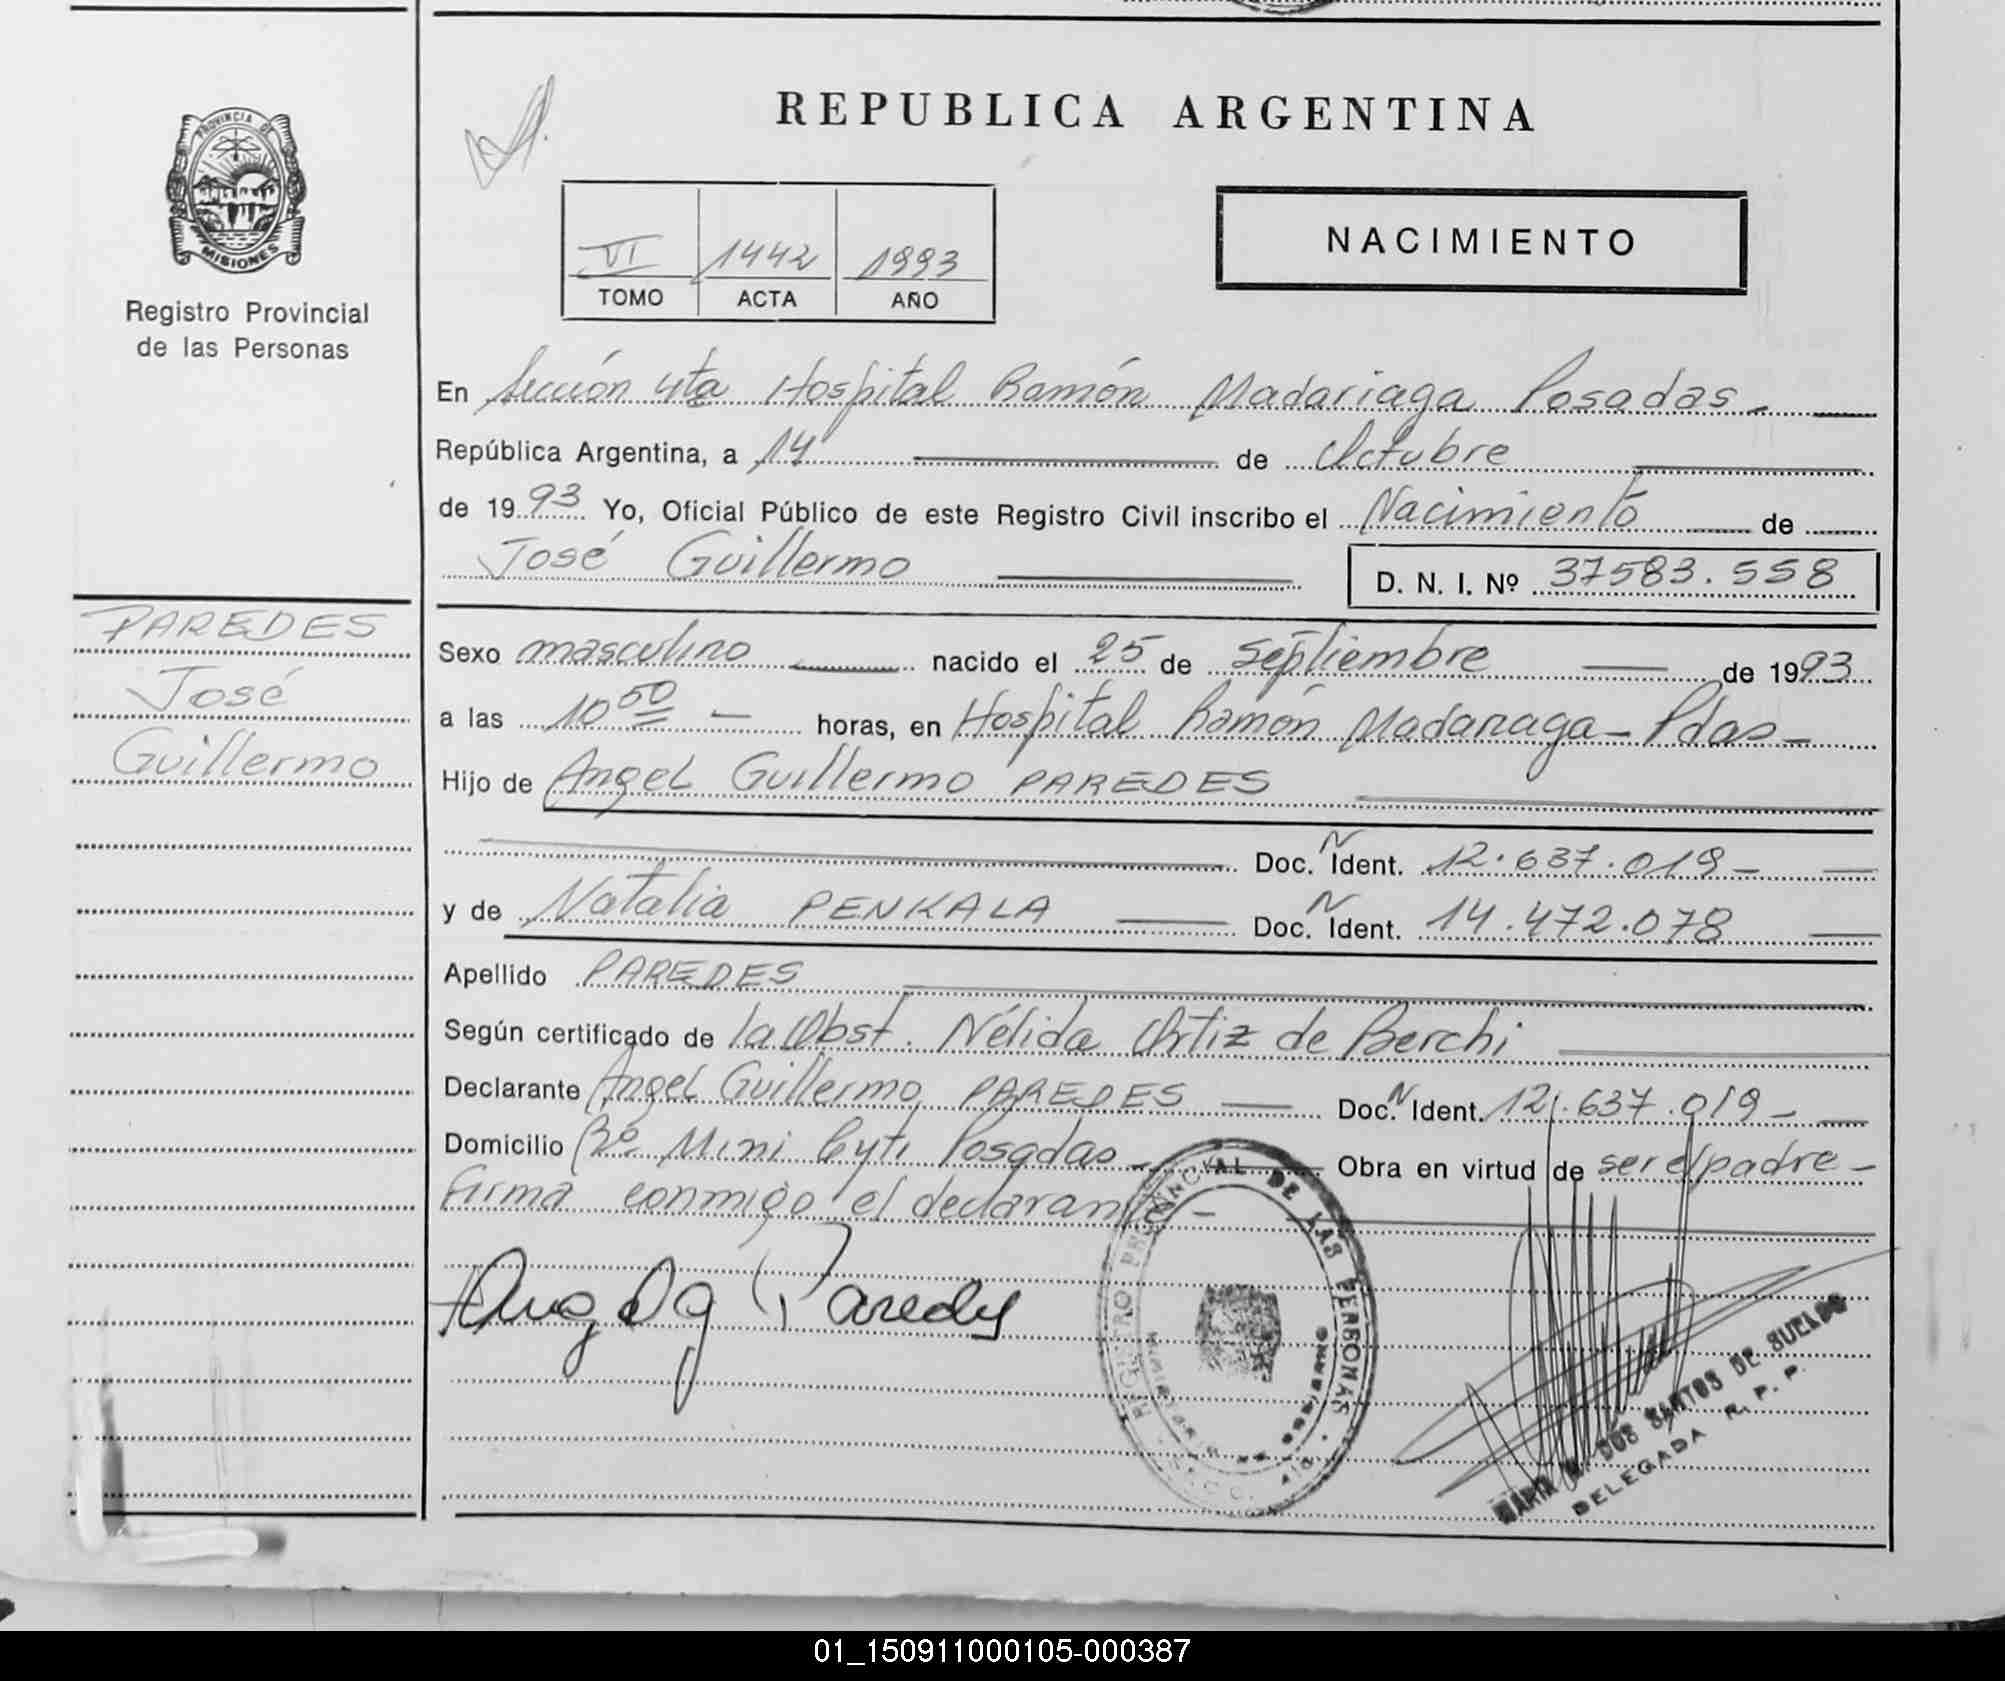 REPUBLICA ARGENTINA
PROVINCIA DE
MISIONES
Registro Provincial
de las Personas
VI 1442 1993
TOMO ACTA AÑO
NACIMIENTO
En Sección 4ta Hospital Ramón Madariaga Posadas -
República Argentina, a 14 de Octubre
de 1993 Yo, Oficial Público de este Registro Civil inscribo el Nacimiento de
José Guillermo
D. N. I. Nº 37583.558
PAREDES
José
Guillermo
Sexo masculino nacido el 25 de Septiembre de 1993
a las 10 50 - horas, en Hospital Ramón Madariaga - Pdas -
Hijo de Angel Guillermo PAREDES
Doc. N Ident. 12.637.019 -
y de Natalia PENKALA Doc. N Ident. 14.472.078
Apellido PAREDES
Según certificado de la Obst. Nélida Ortiz de Berchi
Declarante Angel Guillermo PAREDES Doc. N Ident. 12.637.019 -
Domicilio Bº Mini Cyti Posadas - Obra en virtud de ser el padre -
Firma conmigo el declarante -
Paredes
REGISTRO PROVINCIAL DE LAS PERSONAS
DOS SANTOS DE SUELDO
DELEGADA R. P. P.
01_150911000105-000387